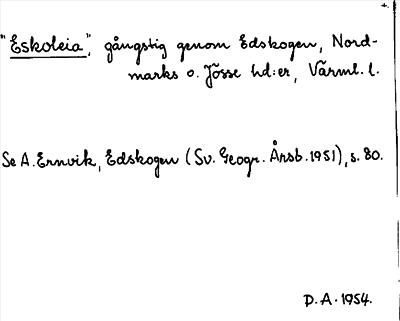 "Eskoleia", gångstig genom Edskogen, Nord-
marks o. Jösse hd:er, Värml. l.
Se A. Ernvik, Edskogen (Sv. Geogr. Årsb. 1951), s. 80.
D. A. 1954.